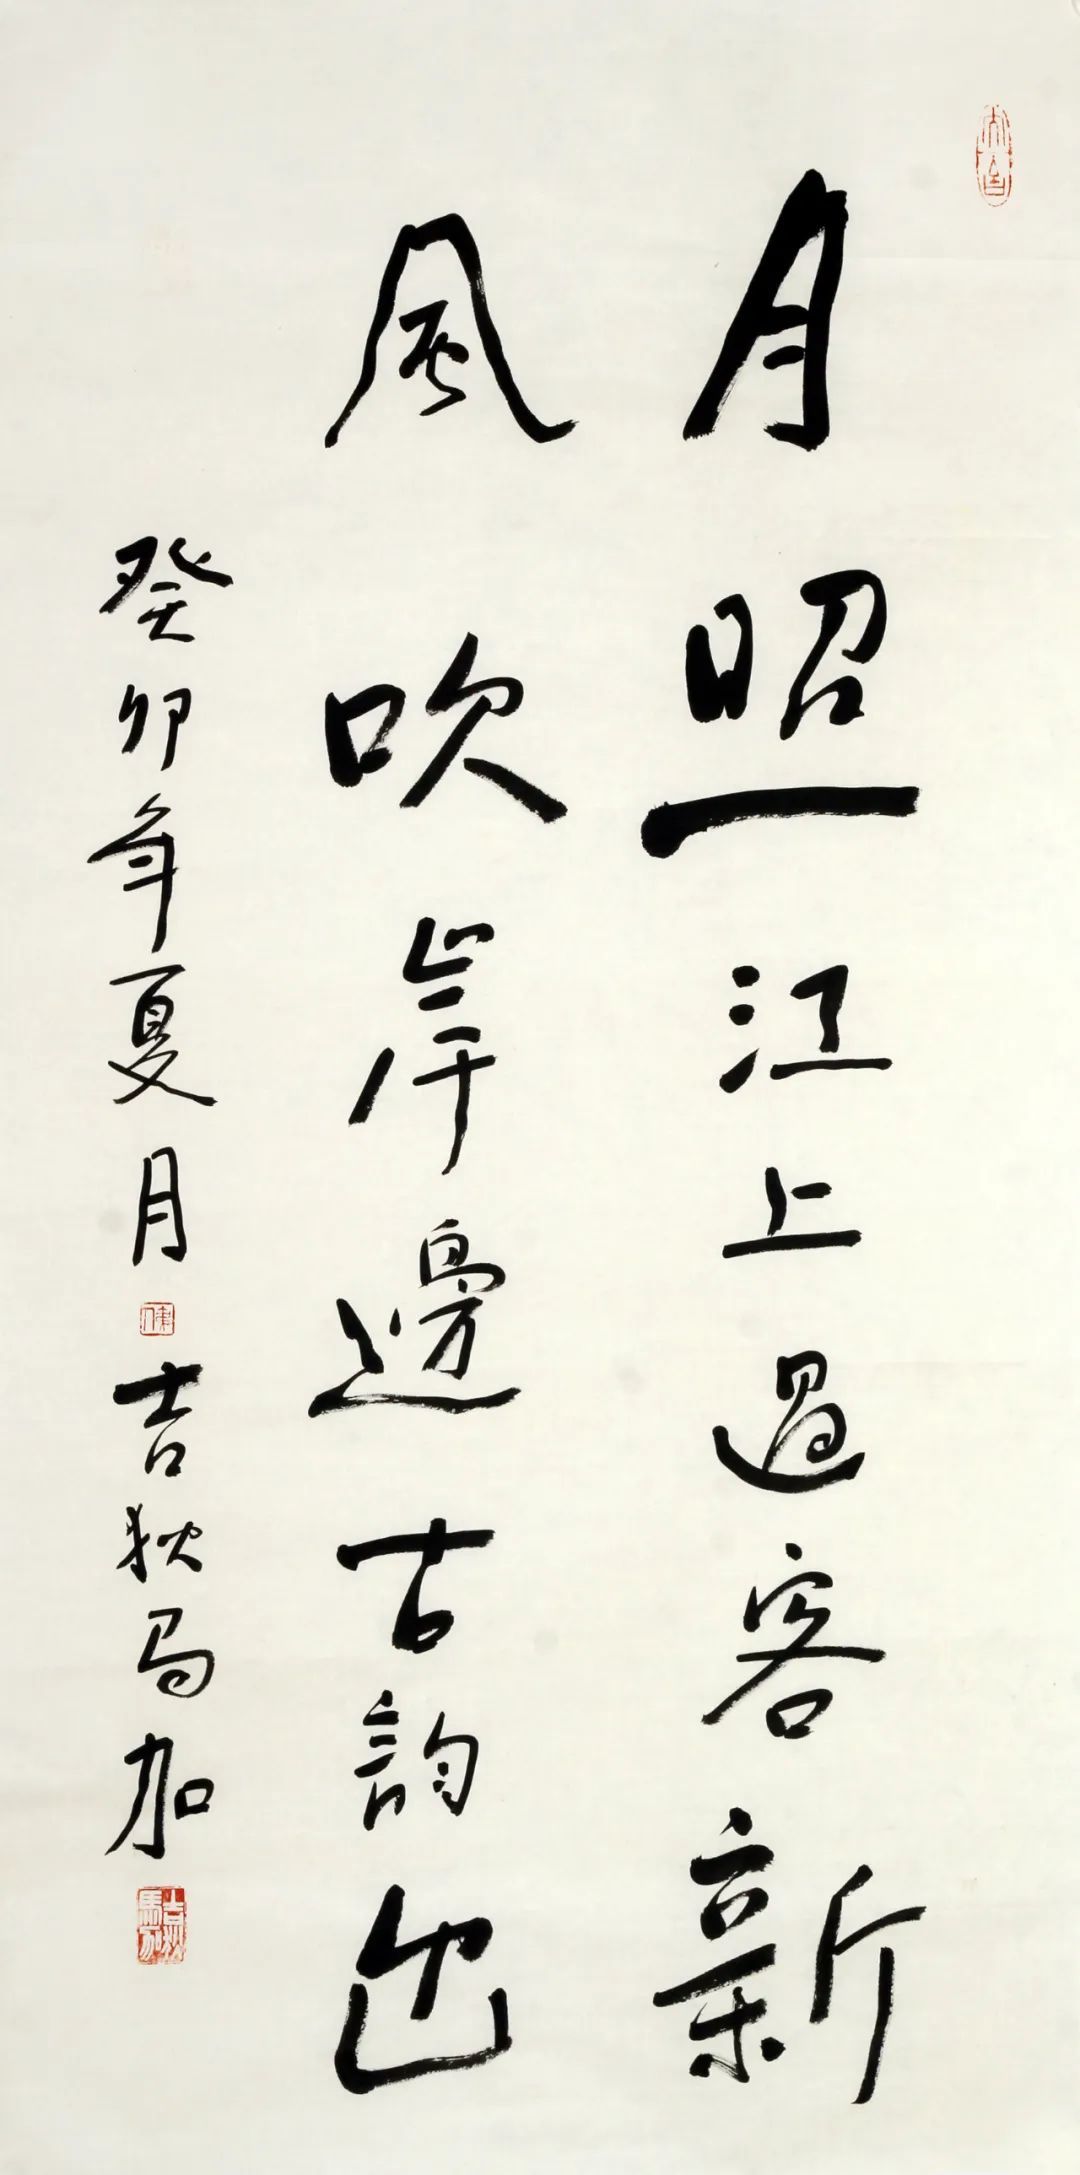 月照江上過客新
風吹岸邊古韵出
癸卯年夏月 吉狄馬加
吉狄馬加